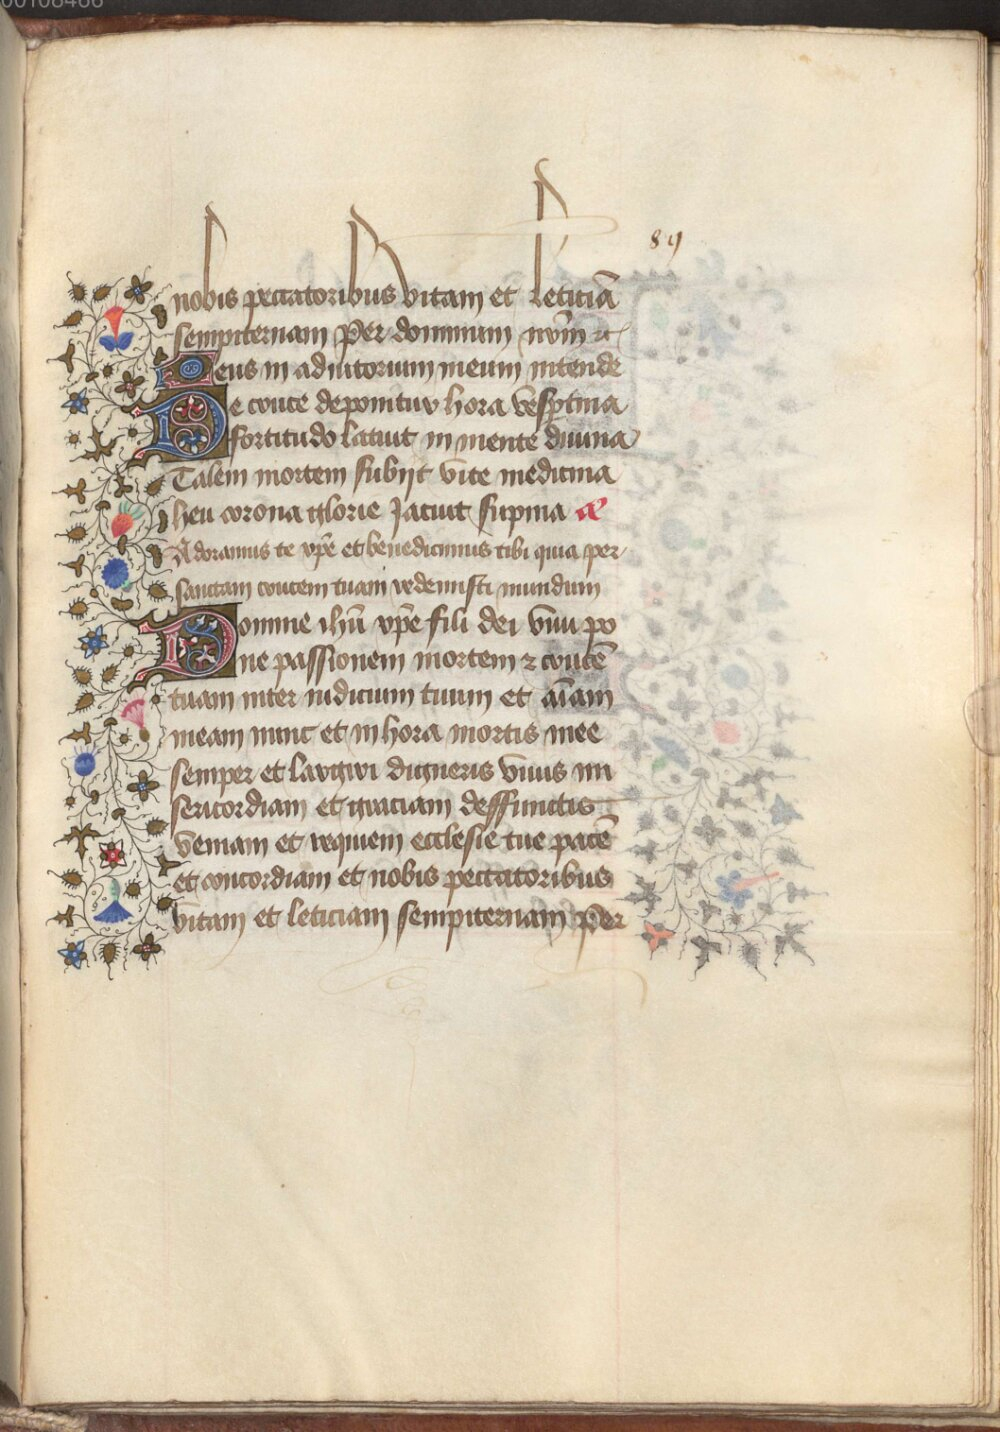 00108466
89
nobis peccatoribus vitam et leticiā
sempiternam Per dominum nr̄m ⁊c
Deus in adiutorium meum intende
De cruce deponitur hora vesp̄tina
fortitudo latuit in mente diuina
Talem mortem subijt vite medicina
heu corona glorie Jacuit supina
Adoramus te xp̄e et benedicimus tibi quia per
sanctam crucem tuam redemisti mundum
Domine ihū xp̄e fili dei viui po
ne passionem mortem ⁊ crucē
tuam inter iudicium tuum et aīam
meam nunc et in hora mortis mee
semper et largiri digneris viuis mi
sericordiam et graciam deffunctis
veniam et requiem ecclesie tue pacē
et concordiam et nobis peccatoribus
vitam et leticiam sempiternam Per